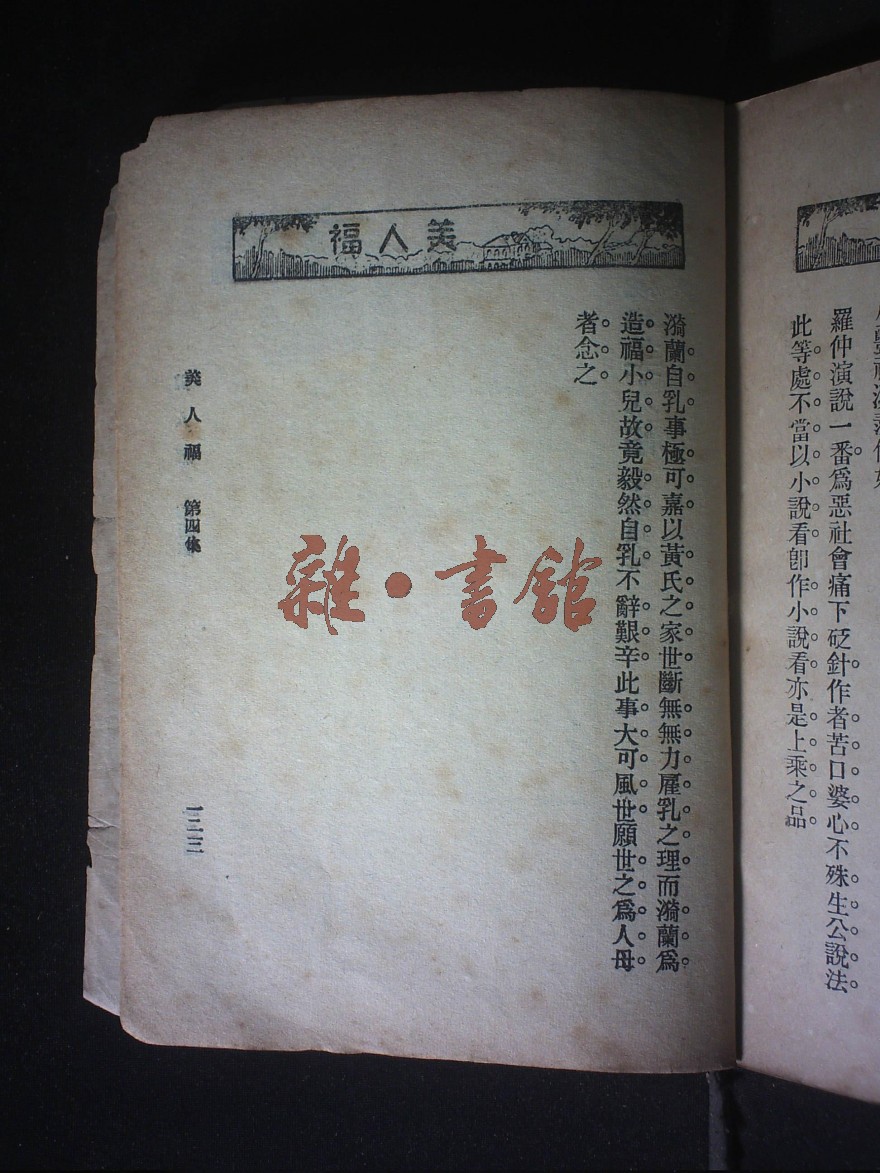 羅仲演說一番爲惡社會痛下砭針作者苦口婆心不殊生公說法
此等處不當以小說看卽作小說看亦是上乘之品
美人福
漪蘭自乳事極可嘉以黃氏之家世斷無無力雇乳之理而漪蘭爲
造福小兒故竟毅然自乳不辭艱辛此事大可風世願世之爲人母
者念之
美人福 第四集
一二三
雜·書館